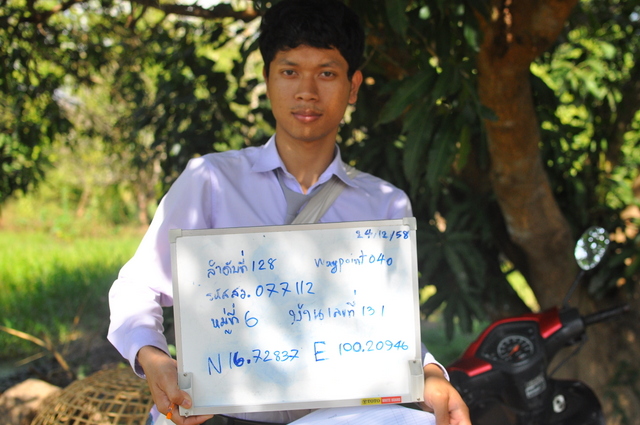 24/12/58
ลำดับที่ 128 waypoint 040
รหัสสว. 077112
หมู่ที่ 6 บ้านเลขที่ 131
N 16.72837 E 100.20946